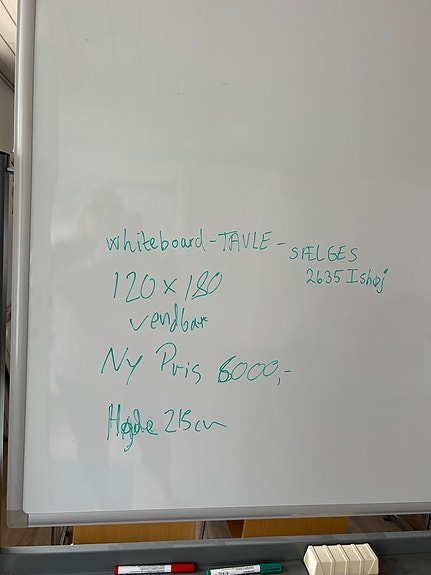 whiteboard-TAVLE- SÆLGES
2635 Ishøj
120 x 180
vendbar
NY Pris 6000,-
Højde 215cm